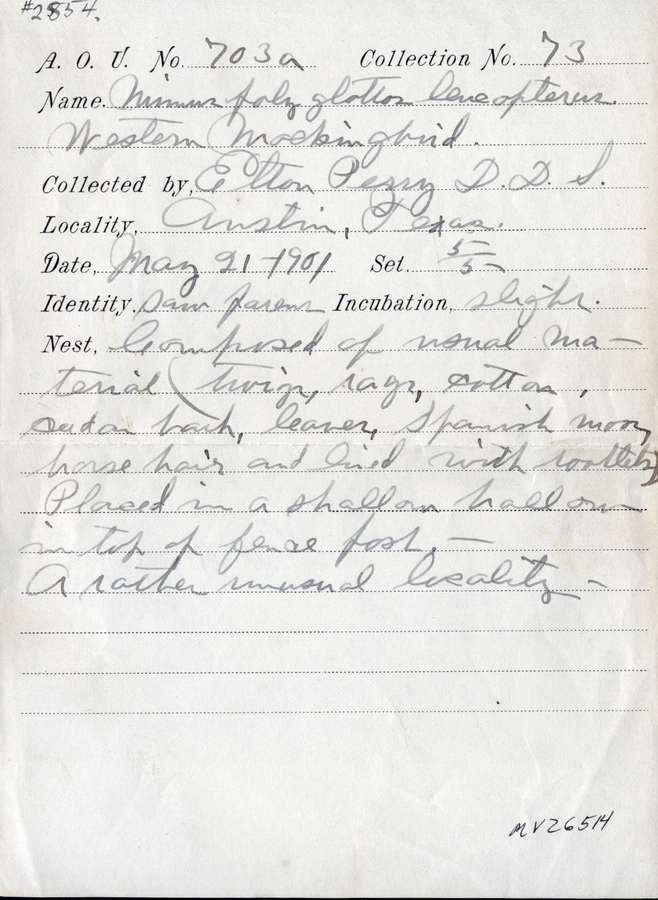 #2854.
A. O. U. No. 703a Collection No. 73
Name. Mimus polyglottos leucopterus.
Western Mockingbird.
Collected by, Elton Perry D.D.S.
Locality, Austin, Texas.
Date, May 21-1901 Set. 5/5
Identity. Saw parent Incubation, slight.
Nest, Composed of usual ma-
terial (twigs, rags, cotton,
cedar bark, leaves, Spanish moss,
horse hair and lined with rootlets)
Placed in a shallow hollow
in top of fence post. —
A rather unusual locality —
MV26514